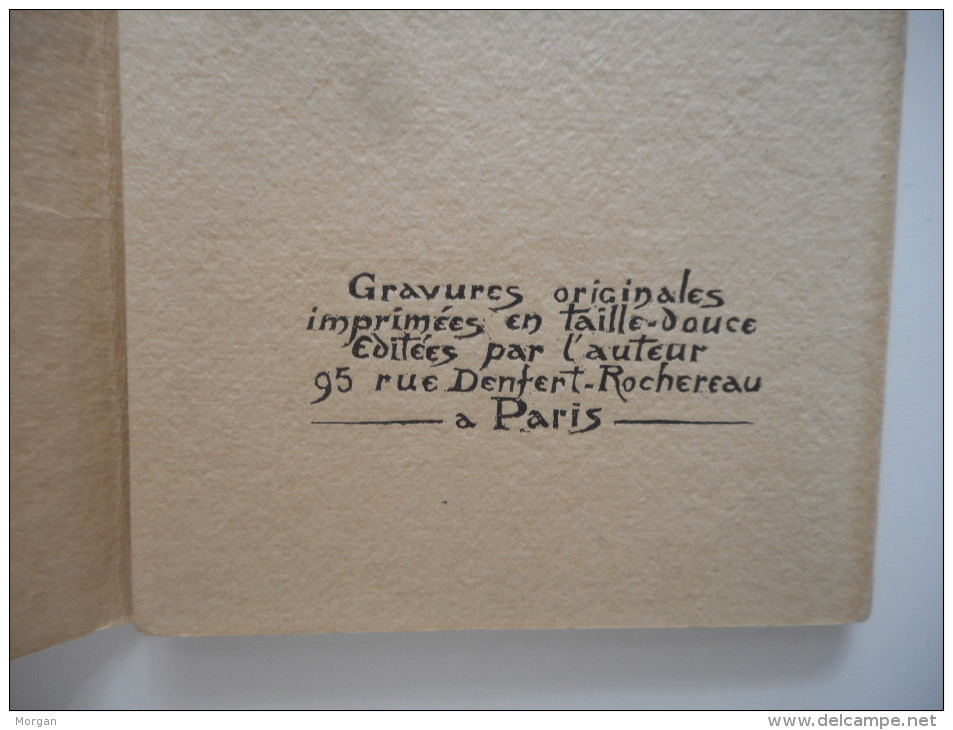 Gravures originales
imprimées en taille-douce
Editées par l'auteur
95 rue Denfert-Rochereau
a Paris
Morgan
www.delcampe.net